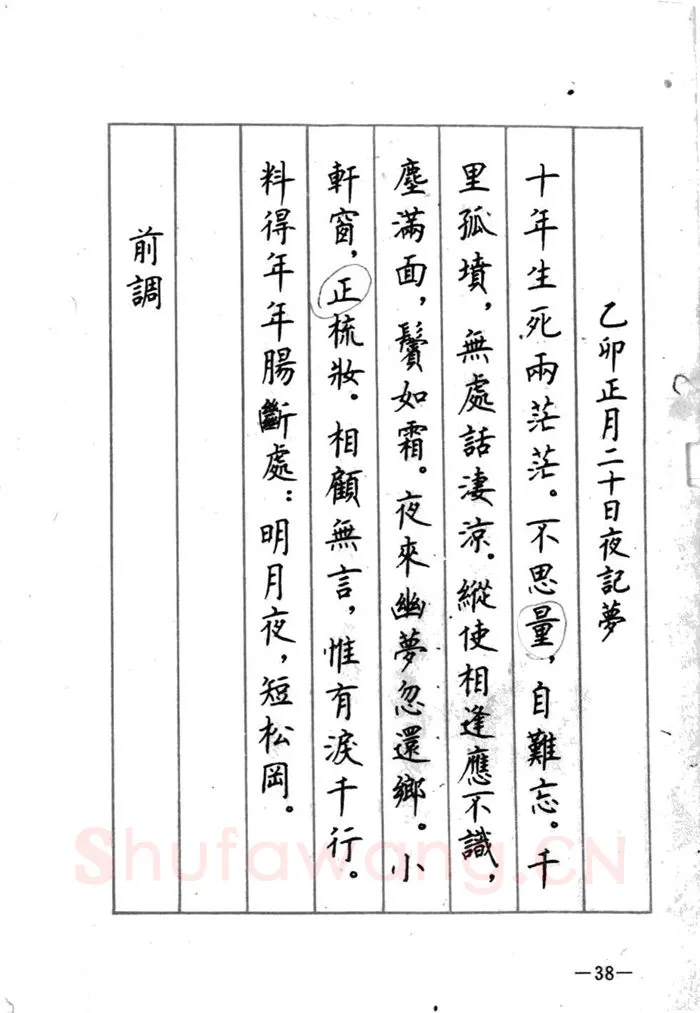 乙卯正月二十日夜記夢
十年生死兩茫茫。不思量，自難忘。千
里孤墳，無處話淒涼。縱使相逢應不識，
塵滿面，鬢如霜。夜來幽夢忽還鄉。小
軒窗，正梳妝。相顧無言，惟有淚千行。
料得年年腸斷處：明月夜，短松岡。
前調
Shufawang.CN
—38—